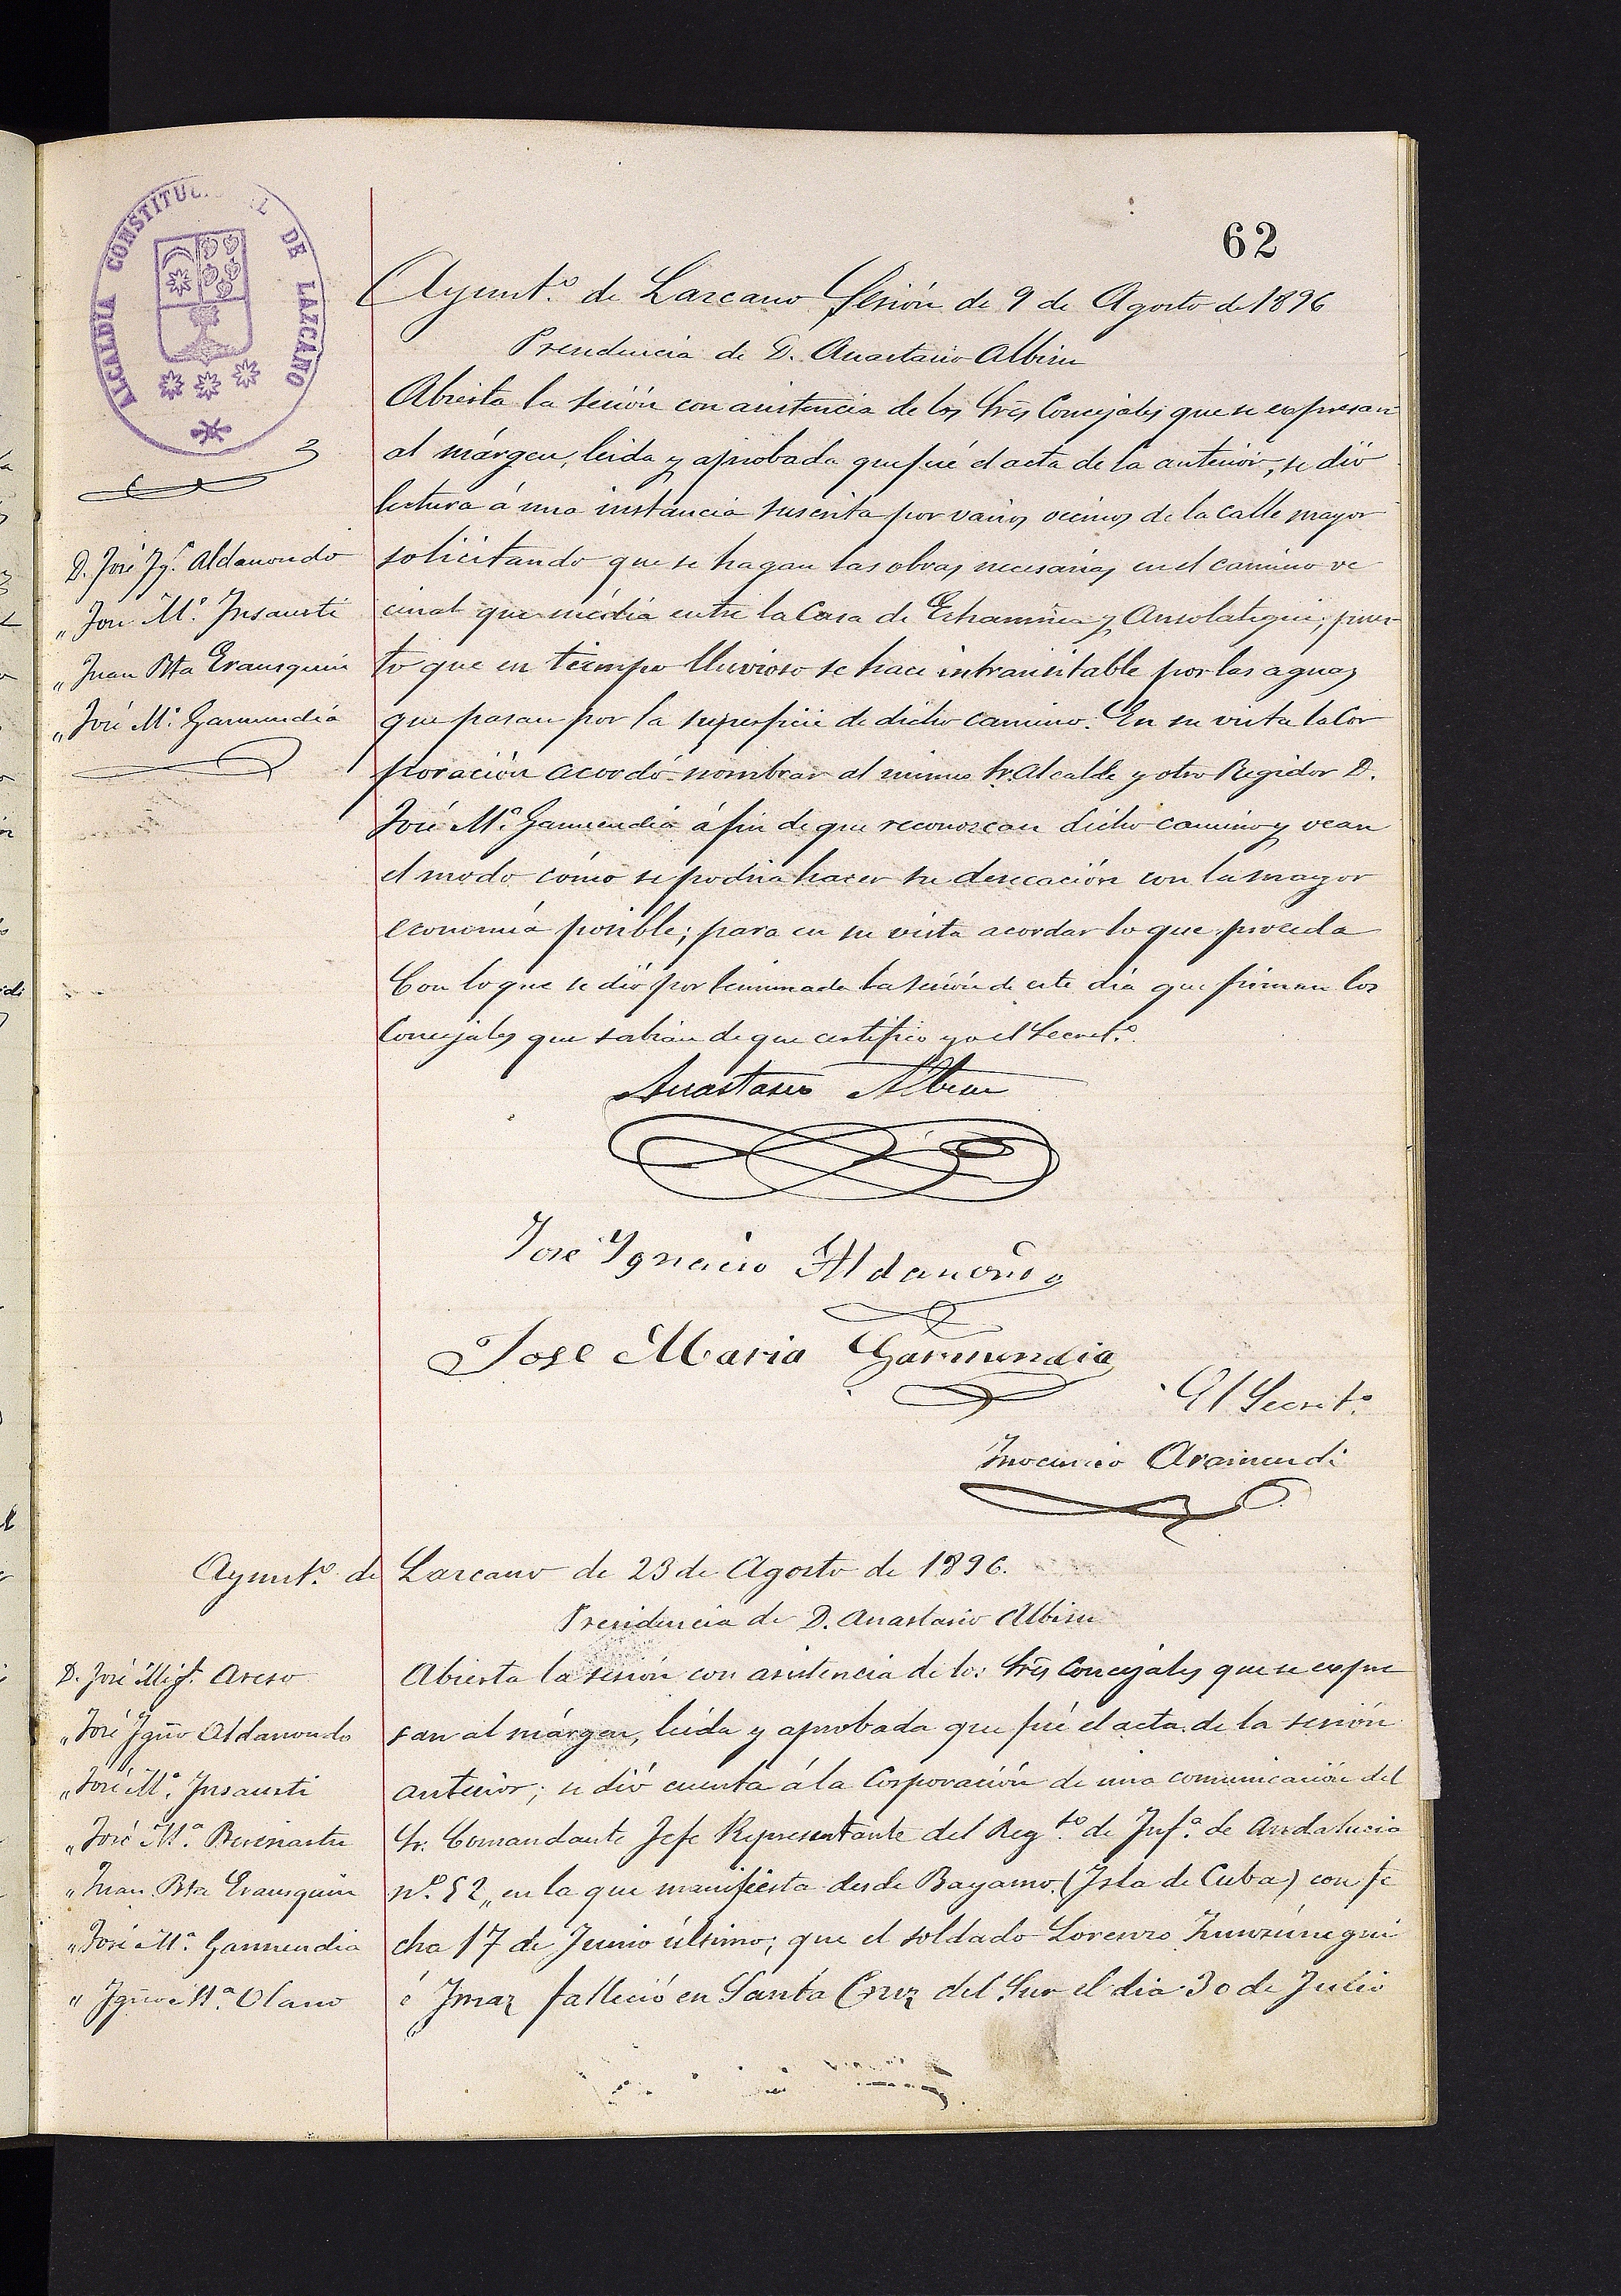 62
ALCALDÍA CONSTITUC. L DE LAZCANO
Ayunt.º de Lazcano Sesión de 9 de Agosto de 1896
Presidencia de D. Anastasio Albisu
Abierta la sesión con asistencia de los Sres Concejales que se expresan
al márgen, leida y aprobada que fué el acta de la anterior, se dió
lectura á una instancia suscrita por varios vecinos de la calle mayor
D. José Ygº Aldamondo
„ José Mª Insausti
„ Juan Bta Erausquin
„ José Mª Garmendia
solicitando que se hagan las obras necesarias en el camino ve
cinal que média entre la Casa de y Ansolategui, pues
to que en tiempo lluvioso se hace intransitable por las aguas
que pasan por la superficie de dicho camino. En su vista la Cor
poración acordó nombrar al mismo Sr. Alcalde y otro Regidor D.
José Mª Garmendia á fin de que reconozcan dicho camino y vean
el modo cómo se podria hacer su desecación con la mayor
economía posible; para en su vista acordar lo que proceda
Con lo que se dió por terminada la sesión de este día que firman los
Concejales que sabian de que certifico yo el Secretº
Anastasio Albisu
José Ygnacio Aldamondo
Jose Maria Garmendia
El Secretº
Inocencio Aramendi
Ayuntº de Lazcano de 23 de Agosto de 1896.
Presidencia de D. Anastasio Albisu
D. José Migl. Areso
„ José Ygno Aldamondo
„ José Mª Insausti
„ José Mª
„ Juan Bta Erausquin
„ José Mª Garmendia
„ Ygno Mª Olano
Abierta la sesión con asistencia de los Sres Concejales que se expre
san al márgen, leida y aprobada que fué el acta de la sesión
anterior; se dió cuenta á la Corporación de una comunicación del
Sr. Comandante Jefe Representante del Regtº de Infª de Andalucia
nº 52„ en la que manifiesta desde Bayamo (Isla de Cuba) con fe
cha 17 de Junio último; que el soldado Lorenzo Zunzúnegui
é Imaz falleció en Santa Cruz del Sur el dia 30 de Julio